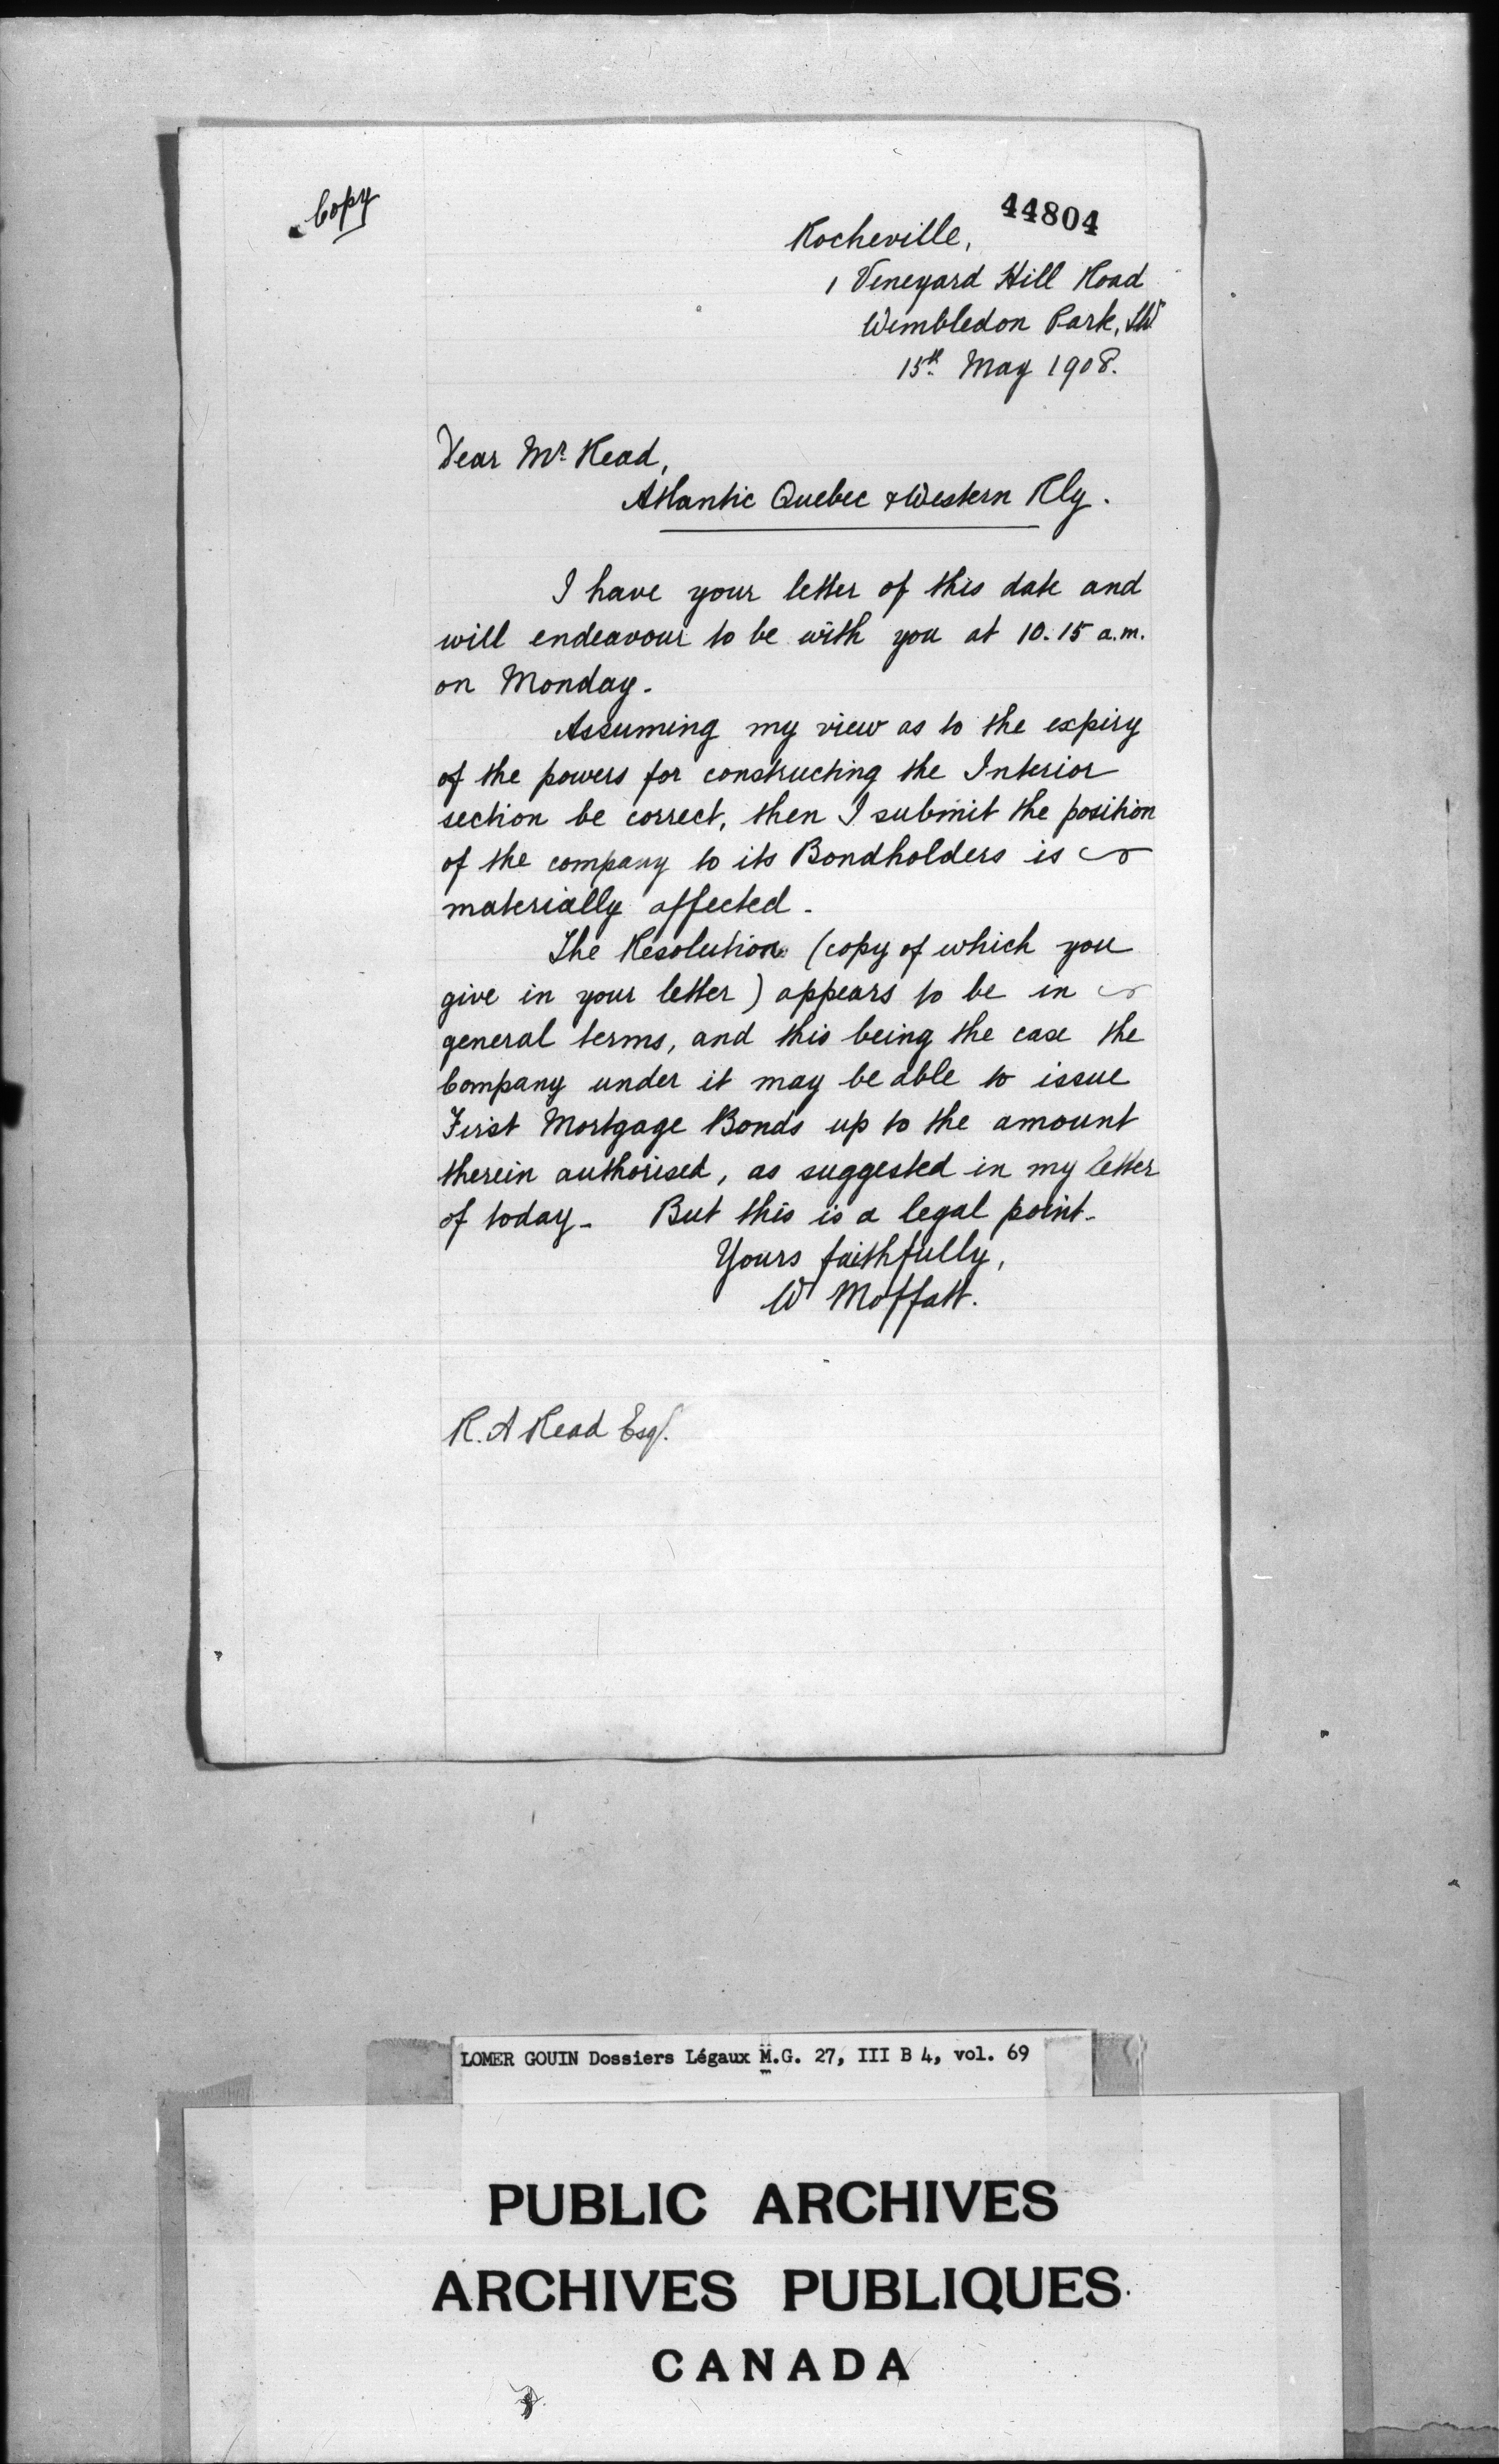 Copy
44804
Rocheville,
1 Vineyard Hill Road
Wimbledon Park, SW
15th May 1908.
Dear Mr Read,
Atlantic Quebec & Western Rly.
I have your letter of this date and
will endeavour to be with you at 10.15 a.m.
on Monday.
Assuming my view as to the expiry
of the powers for constructing the Interior
section be correct, then I submit the position
of the company to its Bondholders is
materially affected.
The Resolution (copy of which you
give in your letter) appears to be in
general terms, and this being the case the
Company under it may be able to issue
First Mortgage Bonds up to the amount
therein authorised, as suggested in my letter
of today. But this is a legal point.
Yours faithfully,
W Moffatt.
R. A Read Esq.
LOMER GOUIN Dossiers Légaux M.G. 27, III B 4, vol. 69
PUBLIC ARCHIVES
ARCHIVES PUBLIQUES
CANADA